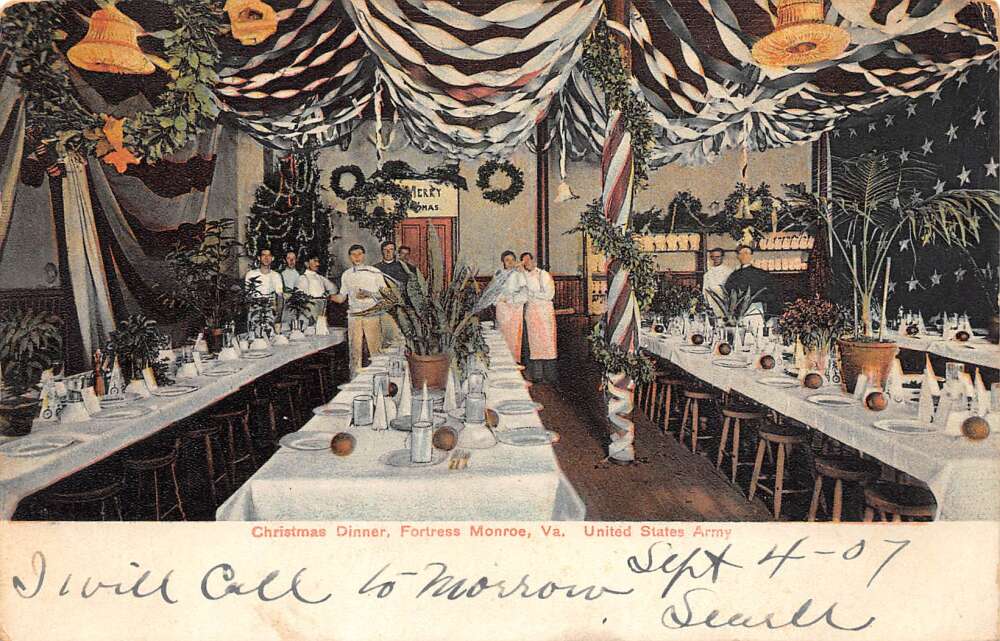 MERRY
XMAS.
Christmas Dinner, Fortress Monroe, Va. United States Army
Sept 4-07
I will Call to Morrow
Sewell